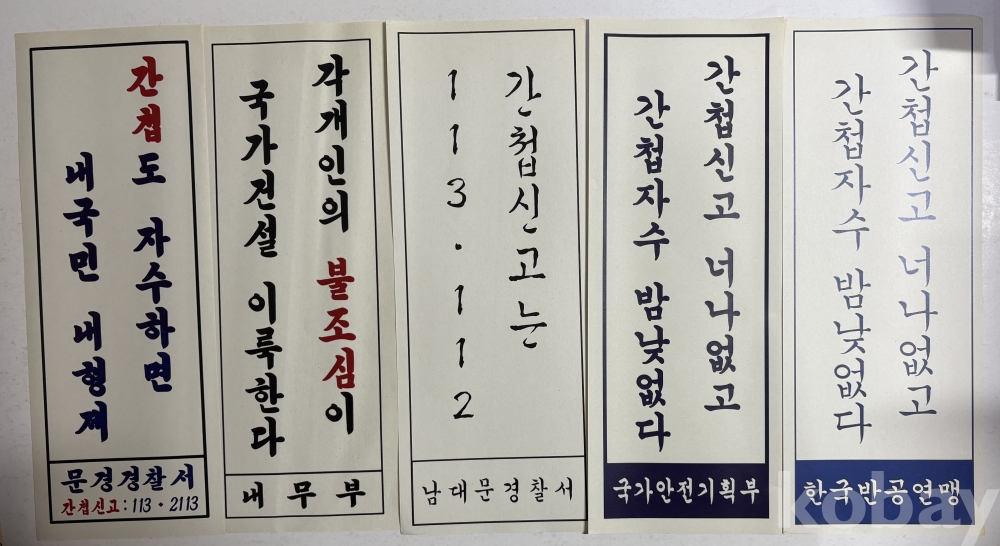 간첩도 자수하면
내국민 내형제
문경경찰서
간첩신고:113·2113
각개인의 불조심이
국가건설 이룩한다
내무부
간첩신고는
113·112
남대문경찰서
간첩신고 너나없고
간첩자수 밤낮없다
국가안전기획부
간첩신고 너나없고
간첩자수 밤낮없다
한국반공연맹
kobay